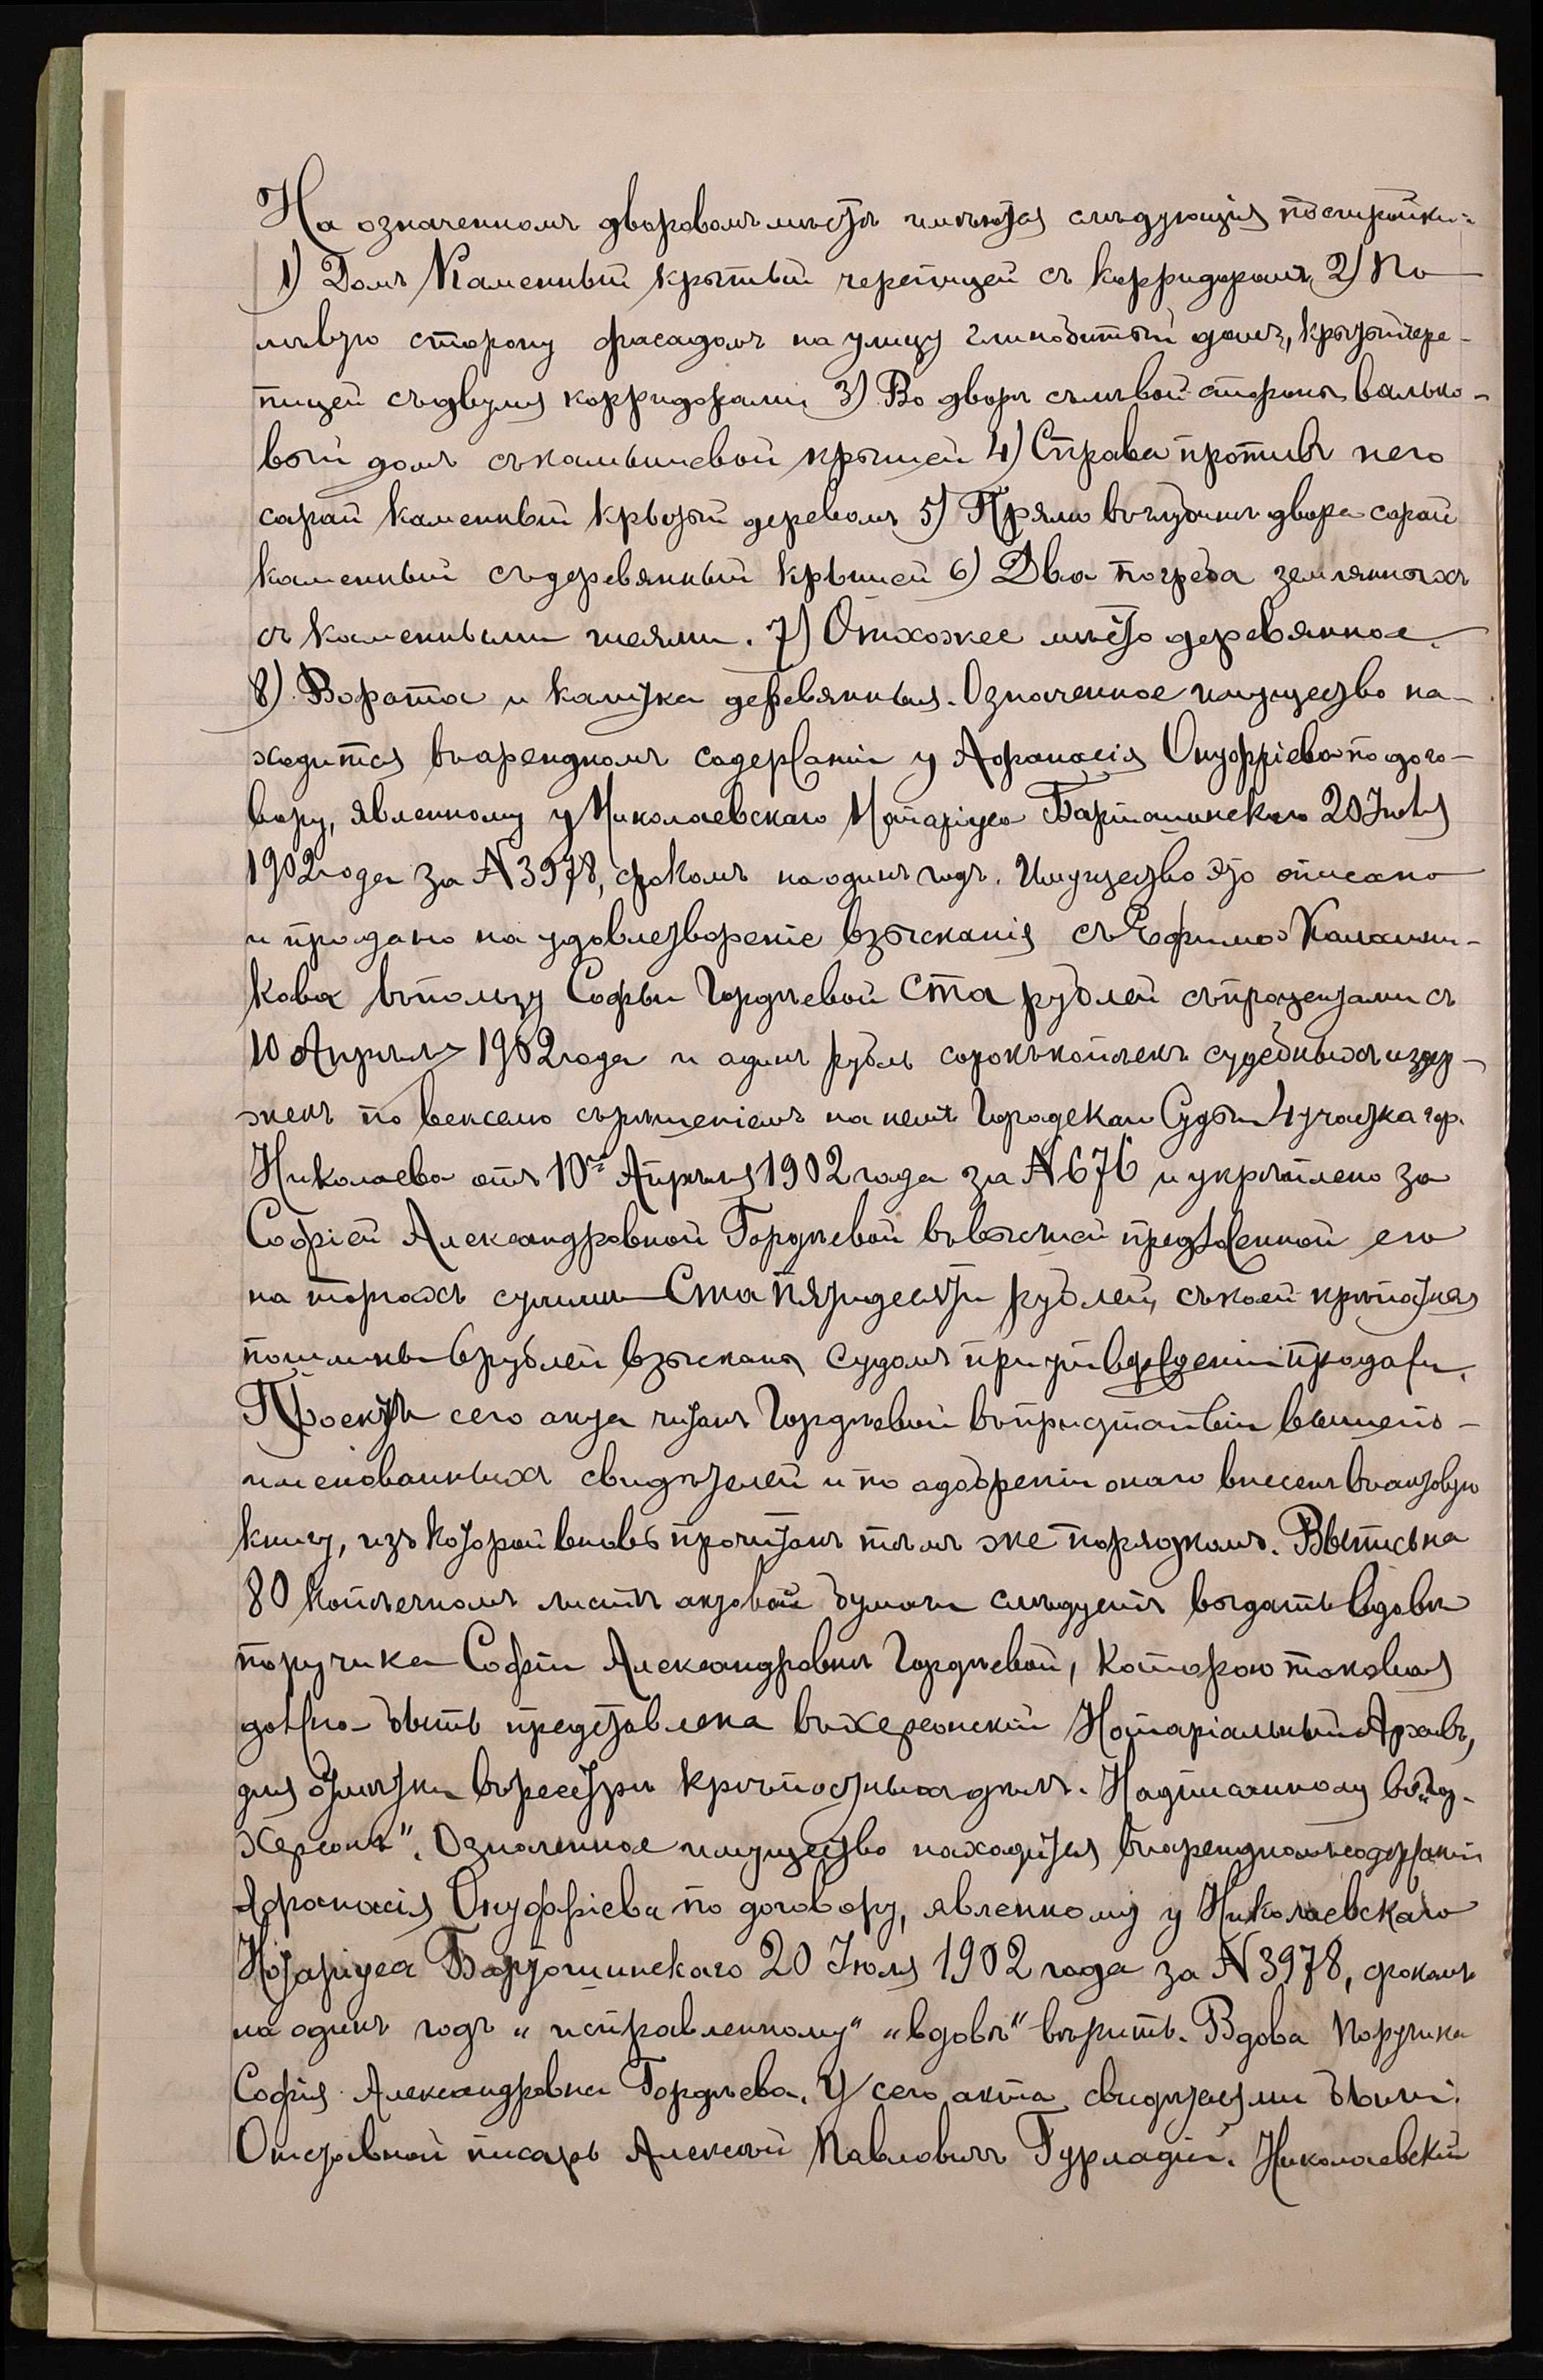 На означенномъ дворовомъ мѣстѣ имѣются слѣдующія постройки:
1) Домъ Каменный крытый черепицей съ корридоромъ, 2) По
лѣвую сторону фасадомъ на улицу глинобитный домъ, крытый чере-
пицей съ двумя корридорами, 3) Во дворѣ съ лѣвой стороны валько-
вый домъ съ камышевой крышей 4) Справа противъ него
сарай каменный крытый деревомъ 5) Прямо въ глубинѣ двора сарай
каменный съ деревянный крышей 6) Два погреба землянныхъ
съ каменными шеями. 7) Отхожее мѣсто деревянное.
8) Ворота и калитка деревянныя. Означенное имущество на-
ходится въ арендномъ содержаніи у Афанасія Онуфріева по дого-
вору, явленному у Николаевскаго Нотаріуса Бартошинскаго 20 Іюля
1902 года за N 3978, срокомъ на одинъ годъ. Имущество это описано
и продано на удовлетвореніе взысканія съ Ефима Калашни-
кова въ пользу Софьи Гордѣевой ста рублей съ процентами съ
10 Апрѣля 1902 года и одинъ рубль сорокъ копѣекъ судебныхъ издер-
жекъ по векселю съ рѣшеніемъ на немъ Городскаго Судьи 4 участка гор.
Николаева отъ 10го Апрѣля 1902 года за N 676 и укрѣплено за
Софіей Александровной Гордѣевой въ высшей предложенной ею
на торгахъ суммѣ Ста пятидесяти рублей, съ коей крѣпостная
пошлина 6 рублей взыскана судомъ при утвержденіи продажи.
Проектъ сего акта читанъ Гордѣевой въ присутствіи вышепо-
именованныхъ свидѣтелей и по одобреніи онаго внесенъ въ актовую
книгу, изъ которой вновь прочитанъ тѣмъ же порядкомъ. Выпись на
80 копѣечномъ листѣ актовой бумаги слѣдуетъ выдать вдовѣ
поручика Софіи Александровнѣ Гордѣевой, которою таковая
должна быть представлена въ Херсонскій Нотаріальный Архивъ,
для отмѣтки въ реестрѣ крѣпостныхъ дѣлъ. Надписанному „въ гор.
Херсонѣ". Означенное имущество находится въ арендномъ содержаніи
Афанасія Онуфріева по договору, явленному у Николаевскаго
Нотаріуса Бартошинскаго 20 Іюля 1902 года за N 3978, срокомъ
на одинъ годъ „исправленному" „вдовѣ" вѣрить. Вдова Поручика
Софія Александровна Гордѣева. У сего акта свидѣтелями были:
Отставной писарь Алексѣй Павловичъ Гурладій. Николаевскій